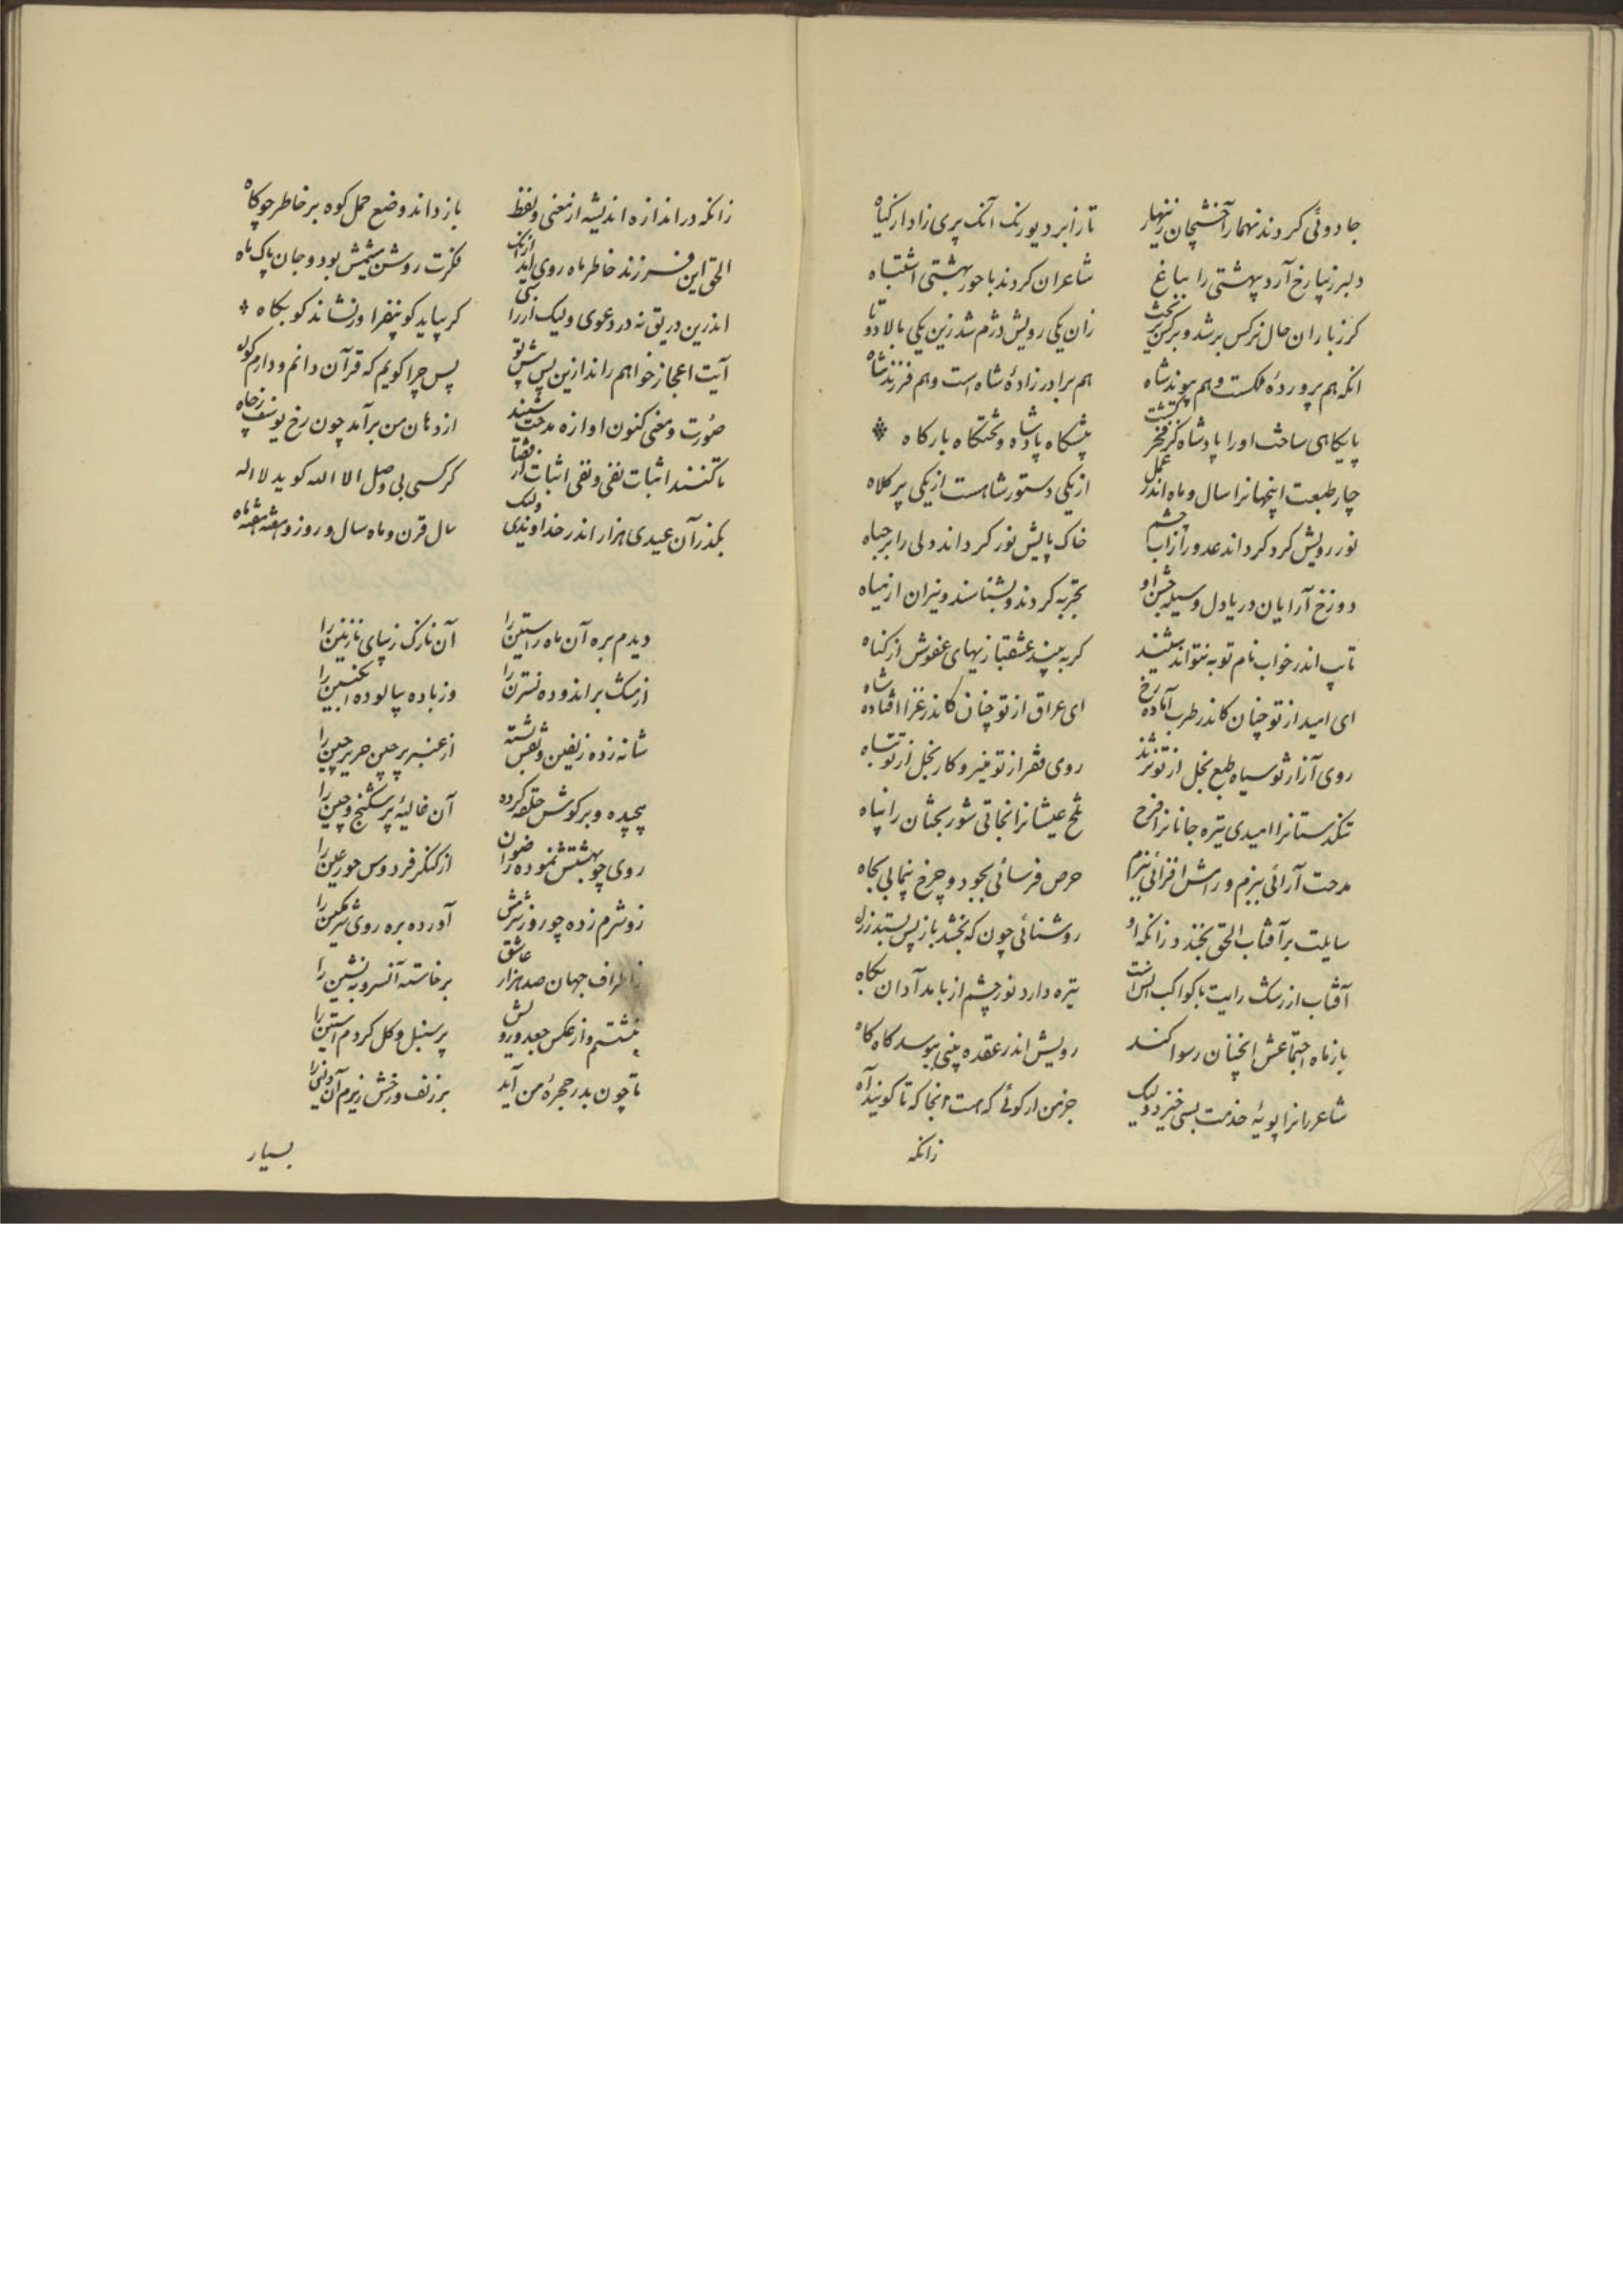 جادوئی کردند نیهمار آخشیجان زینهار تا زابر دیورنک آنک پری زاد از کیاه
دلبر زیبا رخ آرد بهشتی را بباغ شاعران کردند با حور بهشتی اشتباه
کر زباران حال نرکس بر شد و بر کس زان یکی رویش دژم شد زین یکی بالا دوتا
انکه هم پروردۀ ملکست و هم پیوند شاه هم برادر زادۀ شاه است و هم فرزند شاه
پایکاهی ساخت اورا پادشاه کز فخر کشت پیشکاه پادشاه و تختکاه بارکاه
چار طبعت اینجهانرا سال و ماه اندر عمل از یکی دستور شاهست از یکی پر کلاه
نور رویش کرد کرداند عدو را زاب چشم خاک پایش نور کرداند ولی را بر جباه
دوزخ آرایان دریا دل وسیله خشم او تجربه کردند و نشناسند نیران از میاه
تاب اندر خواب نام توبه نتواند شنید کر به بیند عشقبازیهای عفوش از کناه
ای امید از تو چنان کاندر طرب آماده رخ ای عراق از تو چنان کاندر غزا افتاده شاه
روی آز از تو سیاه طبع بخل از تو نژند روی فقر از تو منیر و کار بخل از تو تباه
تنکدستانرا امیدی تیره جانانرا فرح تلخ عیشانرا نجاتی شور بختان را پناه
مدحت آرائی ببزم و رامش افزائی برزم حرص فرسائی بجود و چرخ پیمائی بجاه
سایلت بر آفتاب الحق بخندد زانکه او روشنائی چون که بخشد باز پس بستد زراه
آفتاب از رشک رایت با کواکب تیره دارد نور چشم از بامدادان بکاه
باز ماه اجتماعش انچنان رسوا کند رویش اندر عقده بینی بیوسد کاه کاه
شاعرانرا پویۀ خدمت بسی خیزد ولیک جز من ار کوئی که هست انجا که تا کویند آه
زانکه
زانکه در اندازه اندیشه از معنی و لفظ باز داند وضع حمل کوه بر خاطر چو کاه
الحق این فرزند خاطر ماه روی آید ازانک فکرت روشن شمش بود و جان پاک ماه
اندرین دریق نه در دعوی ولیک ار را کر بپاید کو بیفزا ور نشاند کو بکاه
آیت اعجاز خواهم راند ازین پس پیش تو پس چرا کویم که قرآن دانم و دارم
صورت و معنی کنون اوازه مدحت شنید از دهان من برآمد چون رخ یوسف زچاه
تا کنند اثبات نفی و نفی اثبات از کر کسی بی وصل الا الله کوید لا اله
بکذران عیدی هزار اندر خداوندی ولیک سال قرن و ماه سال و روز و هفته هفته ماه
دیدم بره آن ماه راستین را آن نازک زیبای نازنین را
از مشک بر اندوده نسترن را وز باده بپالوده انکبین را
شانه زده زلفین و بنفش شسته از عنبر پر چین حریر چین را
پیچیده و بر کوش حلقه کرده آن غالیۀ پر شکنج و چین را
روی چو بهشتش نموده رضوان از کنکر فردوس حور عین را
زو شرم زده چو روز شرمش آورده بره روی شرمکین را
زاطراف جهان صد هزار عاشق برخاسته آنسرو به نشین را
بنشستم و از عکس جعد و رویش پر سنبل و کل کردم استین را
تا چون بدر حجرۀ من آید بر زلف و رخش ریزم آن و این را
بسیار